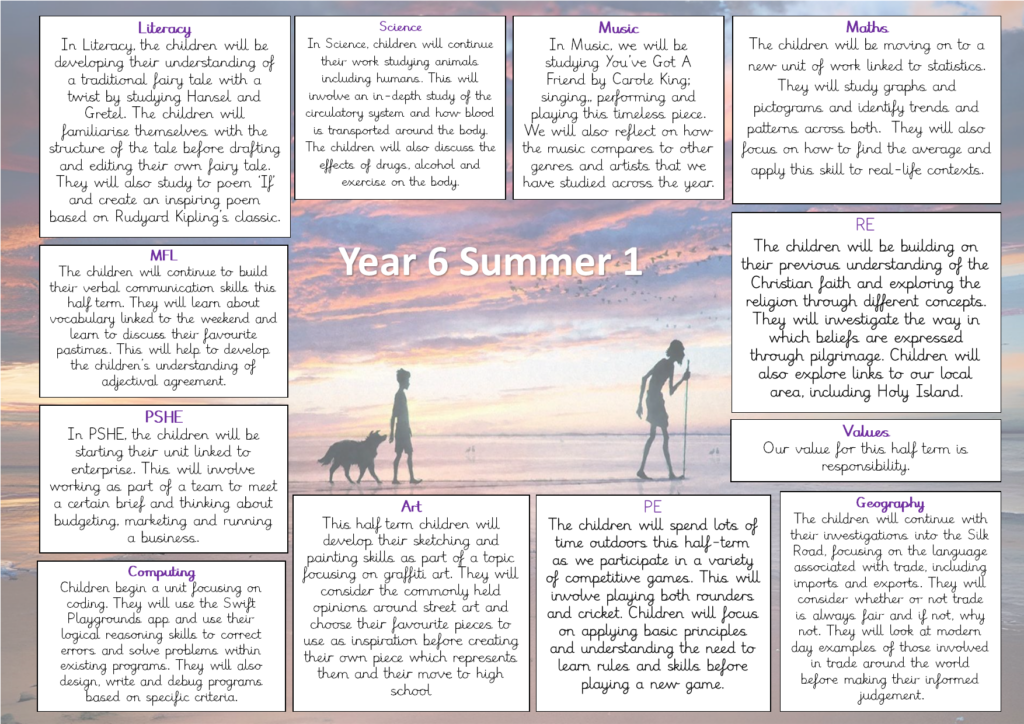 Literacy
In Literacy, the children will be
developing their understanding of
a traditional fairy tale with a
twist by studying Hansel and
Gretel. The children will
familiarise themselves with the
structure of the tale before drafting
and editing their own fairy tale.
They will also study to poem 'If'
and create an inspiring poem
based on Rudyard Kipling's classic.
Science
In Science, children will continue
their work studying animals
including humans. This will
involve an in-depth study of the
circulatory system and how blood
is transported around the body.
The children will also discuss the
effects of drugs, alcohol and
exercise on the body.
Music
In Music, we will be
studying You've Got A
Friend by Carole King;
singing,, performing and
playing this timeless piece.
We will also reflect on how
the music compares to other
genres and artists that we
have studied across the year.
Maths
The children will be moving on to a
new unit of work linked to statistics.
They will study graphs and
pictograms and identify trends and
patterns across both. They will also
focus on how to find the average and
apply this skill to real-life contexts.
Year 6 Summer 1
MFL
The children will continue to build
their verbal communication skills this
half term. They will learn about
vocabulary linked to the weekend and
learn to discuss their favourite
pastimes. This will help to develop
the children's understanding of
adjectival agreement.
RE
The children will be building on
their previous understanding of the
Christian faith and exploring the
religion through different concepts.
They will investigate the way in
which beliefs are expressed
through pilgrimage. Children will
also explore links to our local
area, including Holy Island.
PSHE
In PSHE, the children will be
starting their unit linked to
enterprise. This will involve
working as part of a team to meet
a certain brief and thinking about
budgeting, marketing and running
a business.
Values
Our value for this half term is
responsibility.
Computing
Children begin a unit focusing on
coding. They will use the Swift
Playgrounds app and use their
logical reasoning skills to correct
errors and solve problems within
existing programs. They will also
design, write and debug programs
based on specific criteria.
Art
This half term children will
develop their sketching and
painting skills as part of a topic
focusing on graffiti art. They will
consider the commonly held
opinions around street art and
choose their favourite pieces to
use as inspiration before creating
their own piece which represents
them and their move to high
school
PE
The children will spend lots of
time outdoors this half-term
as we participate in a variety
of competitive games. This will
involve playing both rounders
and cricket. Children will focus
on applying basic principles
and understanding the need to
learn rules and skills before
playing a new game.
Geography
The children will continue with
their investigations into the Silk
Road, focusing on the language
associated with trade, including
imports and exports. They will
consider whether or not trade
is always fair and if not, why
not. They will look at modern
day examples of those involved
in trade around the world
before making their informed
judgement.